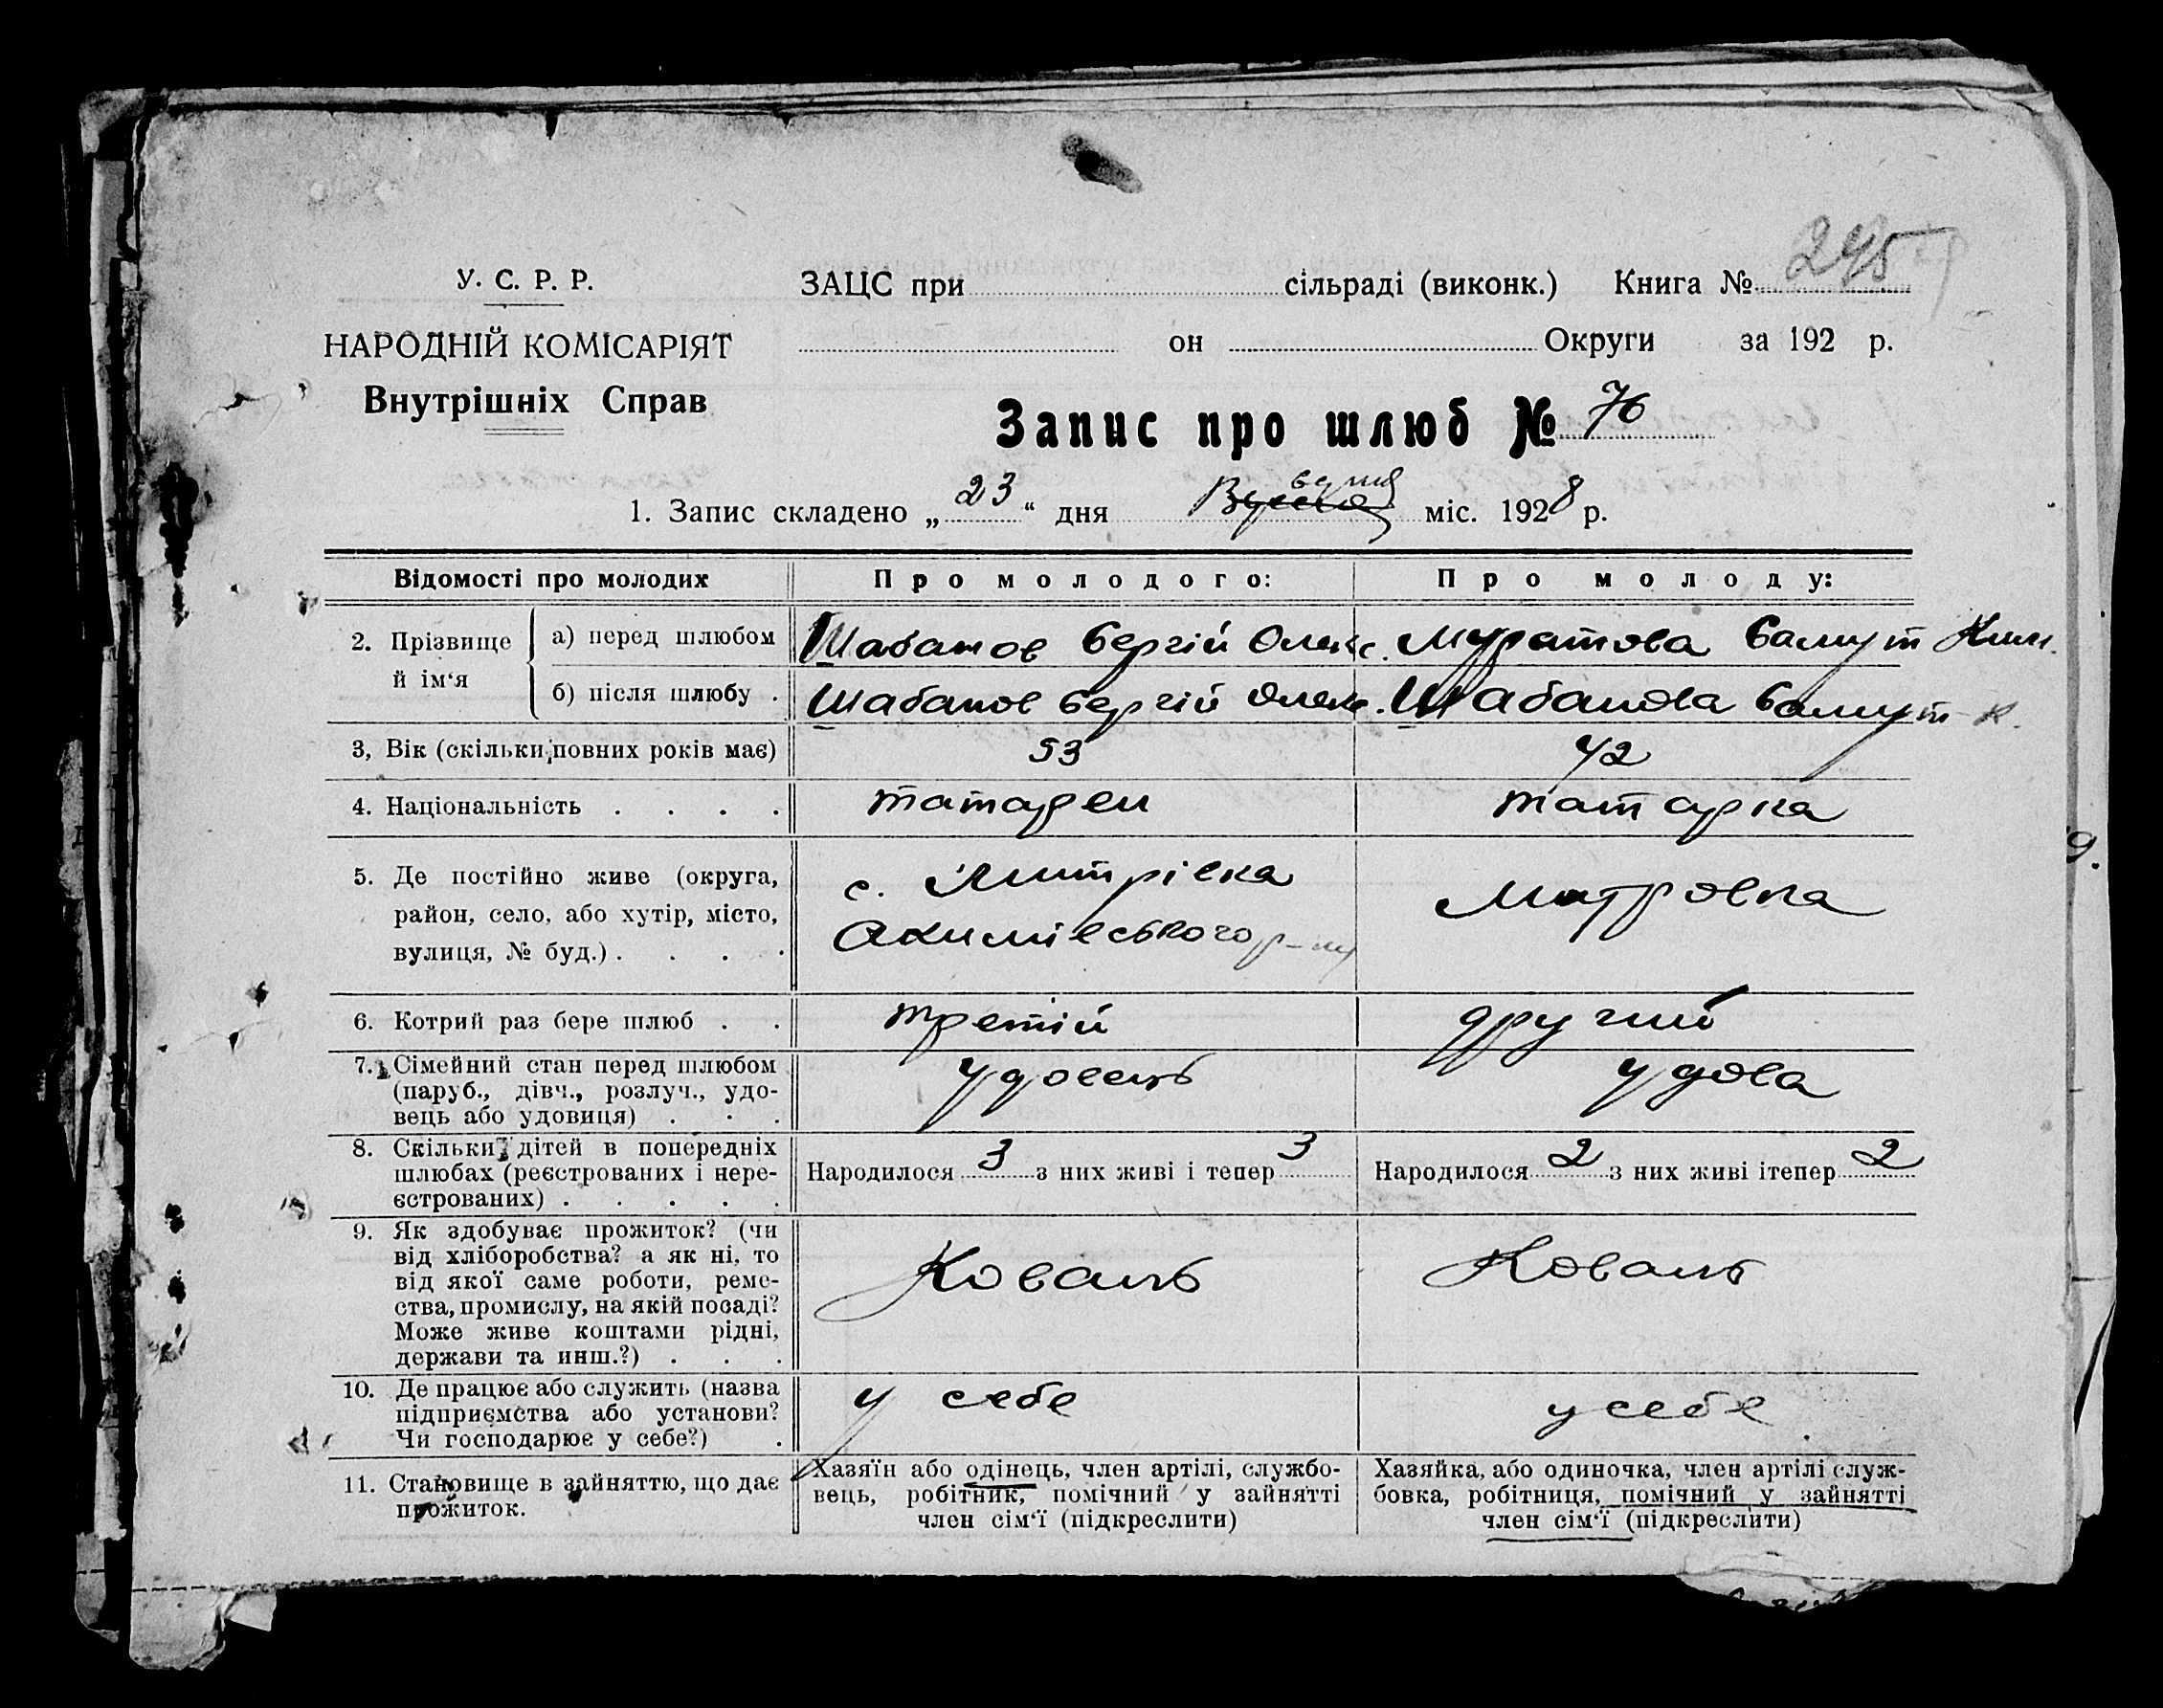 245
У. С. Р. Р.
ЗАЦС при сільраді (виконк.) Книга №
НАРОДНІЙ КОМІСАРІЯТ
он Округи за 192 р.
Внутрішніх Справ
Запис про шлюб № 76
1. Запис складено „23“ дня міс. 1928 р.
Відомості про молодих
Про молодого:
Про молоду:
2. Прізвище й ім‘я
а) перед шлюбом
Шабанов Сергій Олекс.
Муратова
б) після шлюбу .
Шабанов Сергій Олекс.
Шабанова
3, Вік (скільки повних років має)
53
42
4. Національність . . . .
татарен
татарка
5. Де постійно живе (округа,
район, село, або хутір, місто,
вулиця, № буд.) . . . .
с. Митрівка
Акимівського р-ну
Митровка
6. Котрий раз бере шлюб . .
третій
другий
7. Сімейний стан перед шлюбом
(паруб., дівч., розлуч., удо-
вець або удовиця) . . .
удовець
удова
8. Скільки дітей в попередніх
шлюбах (реєстрованих і нере-
єстрованих) . . . . .
Народилося 3 з них живі і тепер 3
Народилося 2 з них живі ітепер 2
9. Як здобуває прожиток? (чи
від хліборобства? а як ні, то
від якої саме роботи, реме-
ства, промислу, на якій посаді?
Може живе коштами рідні,
держави та инш.?) . . .
Коваль
Коваль
10. Де працює або служить (назва
підприємства або установи?
Чи господарює у себе?) .
у себе
у себе
11. Становище в зайняттю, що дає
прожиток.
Хазяїн або одінець, член артілі, службо-
вець, робітник, помічний у зайнятті
член сім‘ї (підкреслити)
Хазяйка, або одиночка, член артілі служ-
бовка, робітниця, помічний у зайнятті
член сім‘ї (підкреслити)